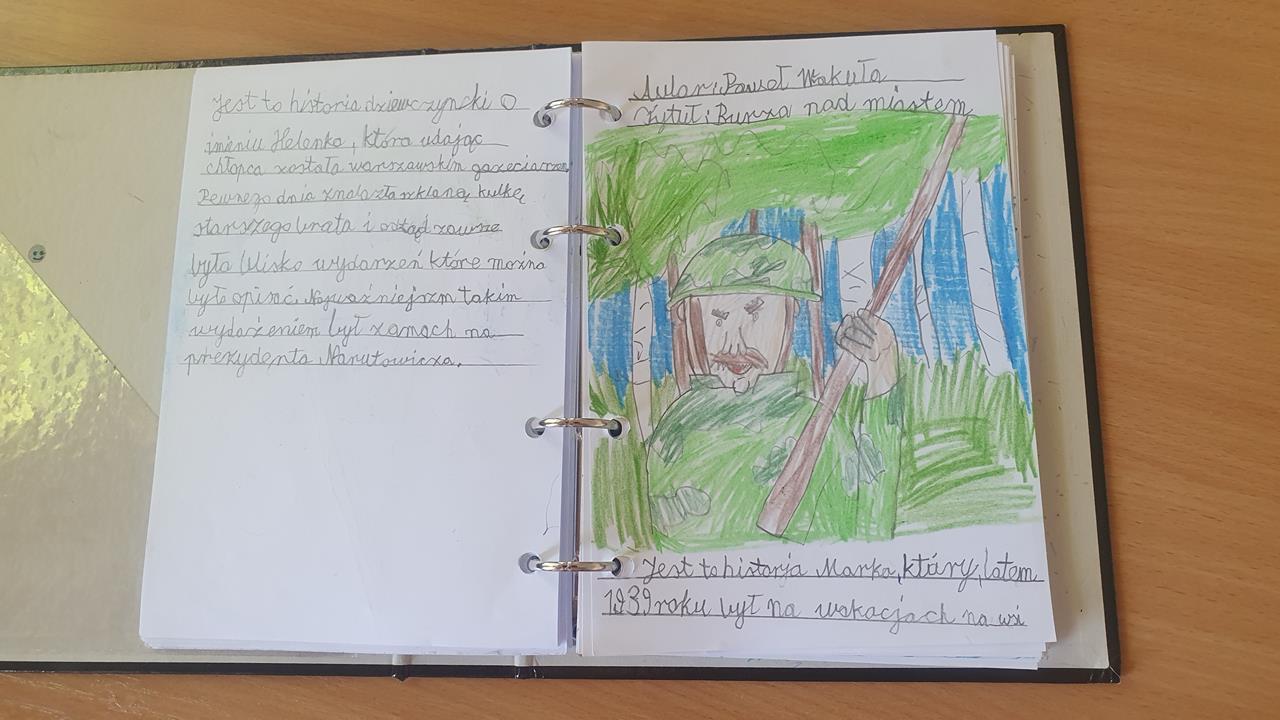 Jest to historia dziewczynki o
imieniu Helenka, która udając
chłopca została warszawskim gazeciarzem
Pewnego dnia znalazła szklaną kulkę
starszego brata i odtąd zawsze
była blisko wydarzeń które można
było opisać. Najważniejszm takim
wydażeniem był zamach na
prezydenta Narutowicza.
Autor: Paweł Wakuła
Tytuł: Burza nad miastem
Jest to historja Marka, który, latem
1939 roku był na wakacjach na wsi